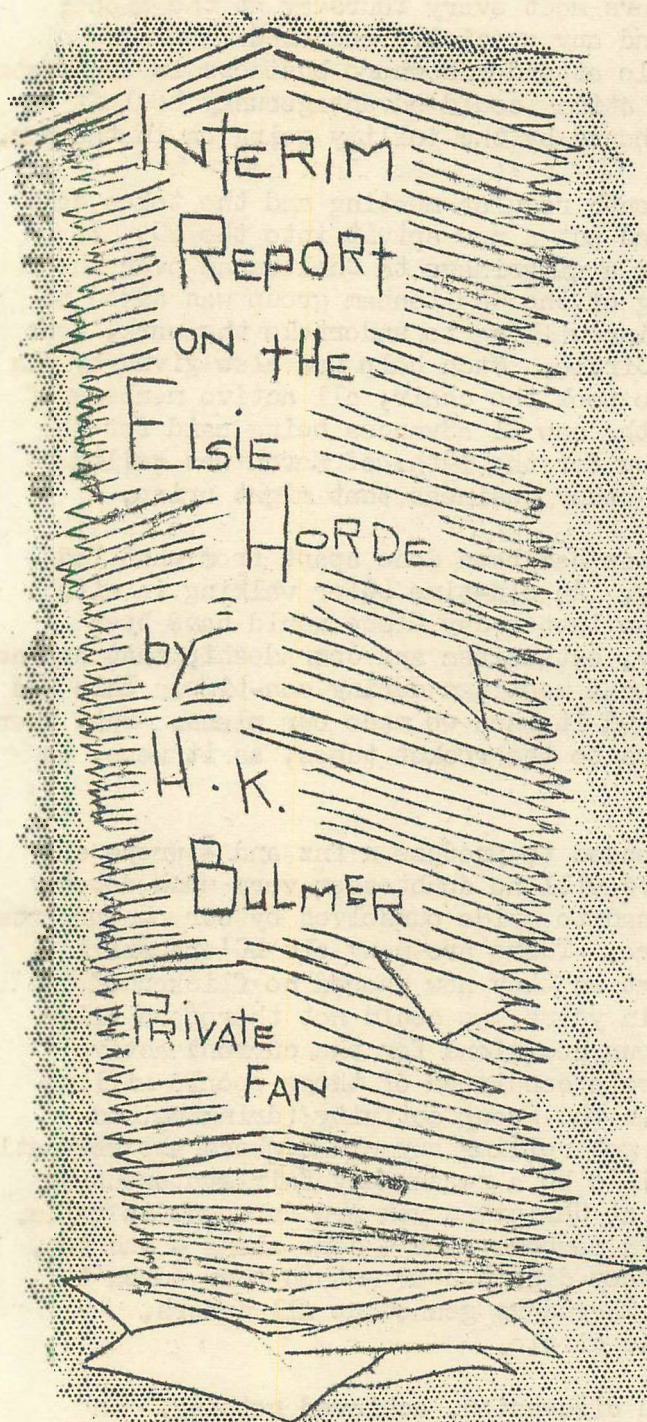 INTERIM
REPORT
ON THE
ELSIE
HORDE
by
H. K.
BULMER
PRIVATE
FAN